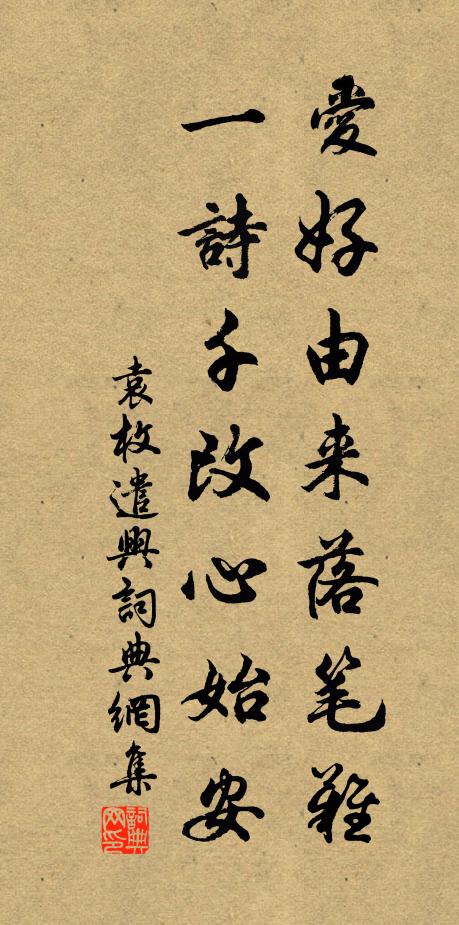 愛好由来落笔難
一詩千改心始安
袁枚遣興詞典網集
詞典
网印